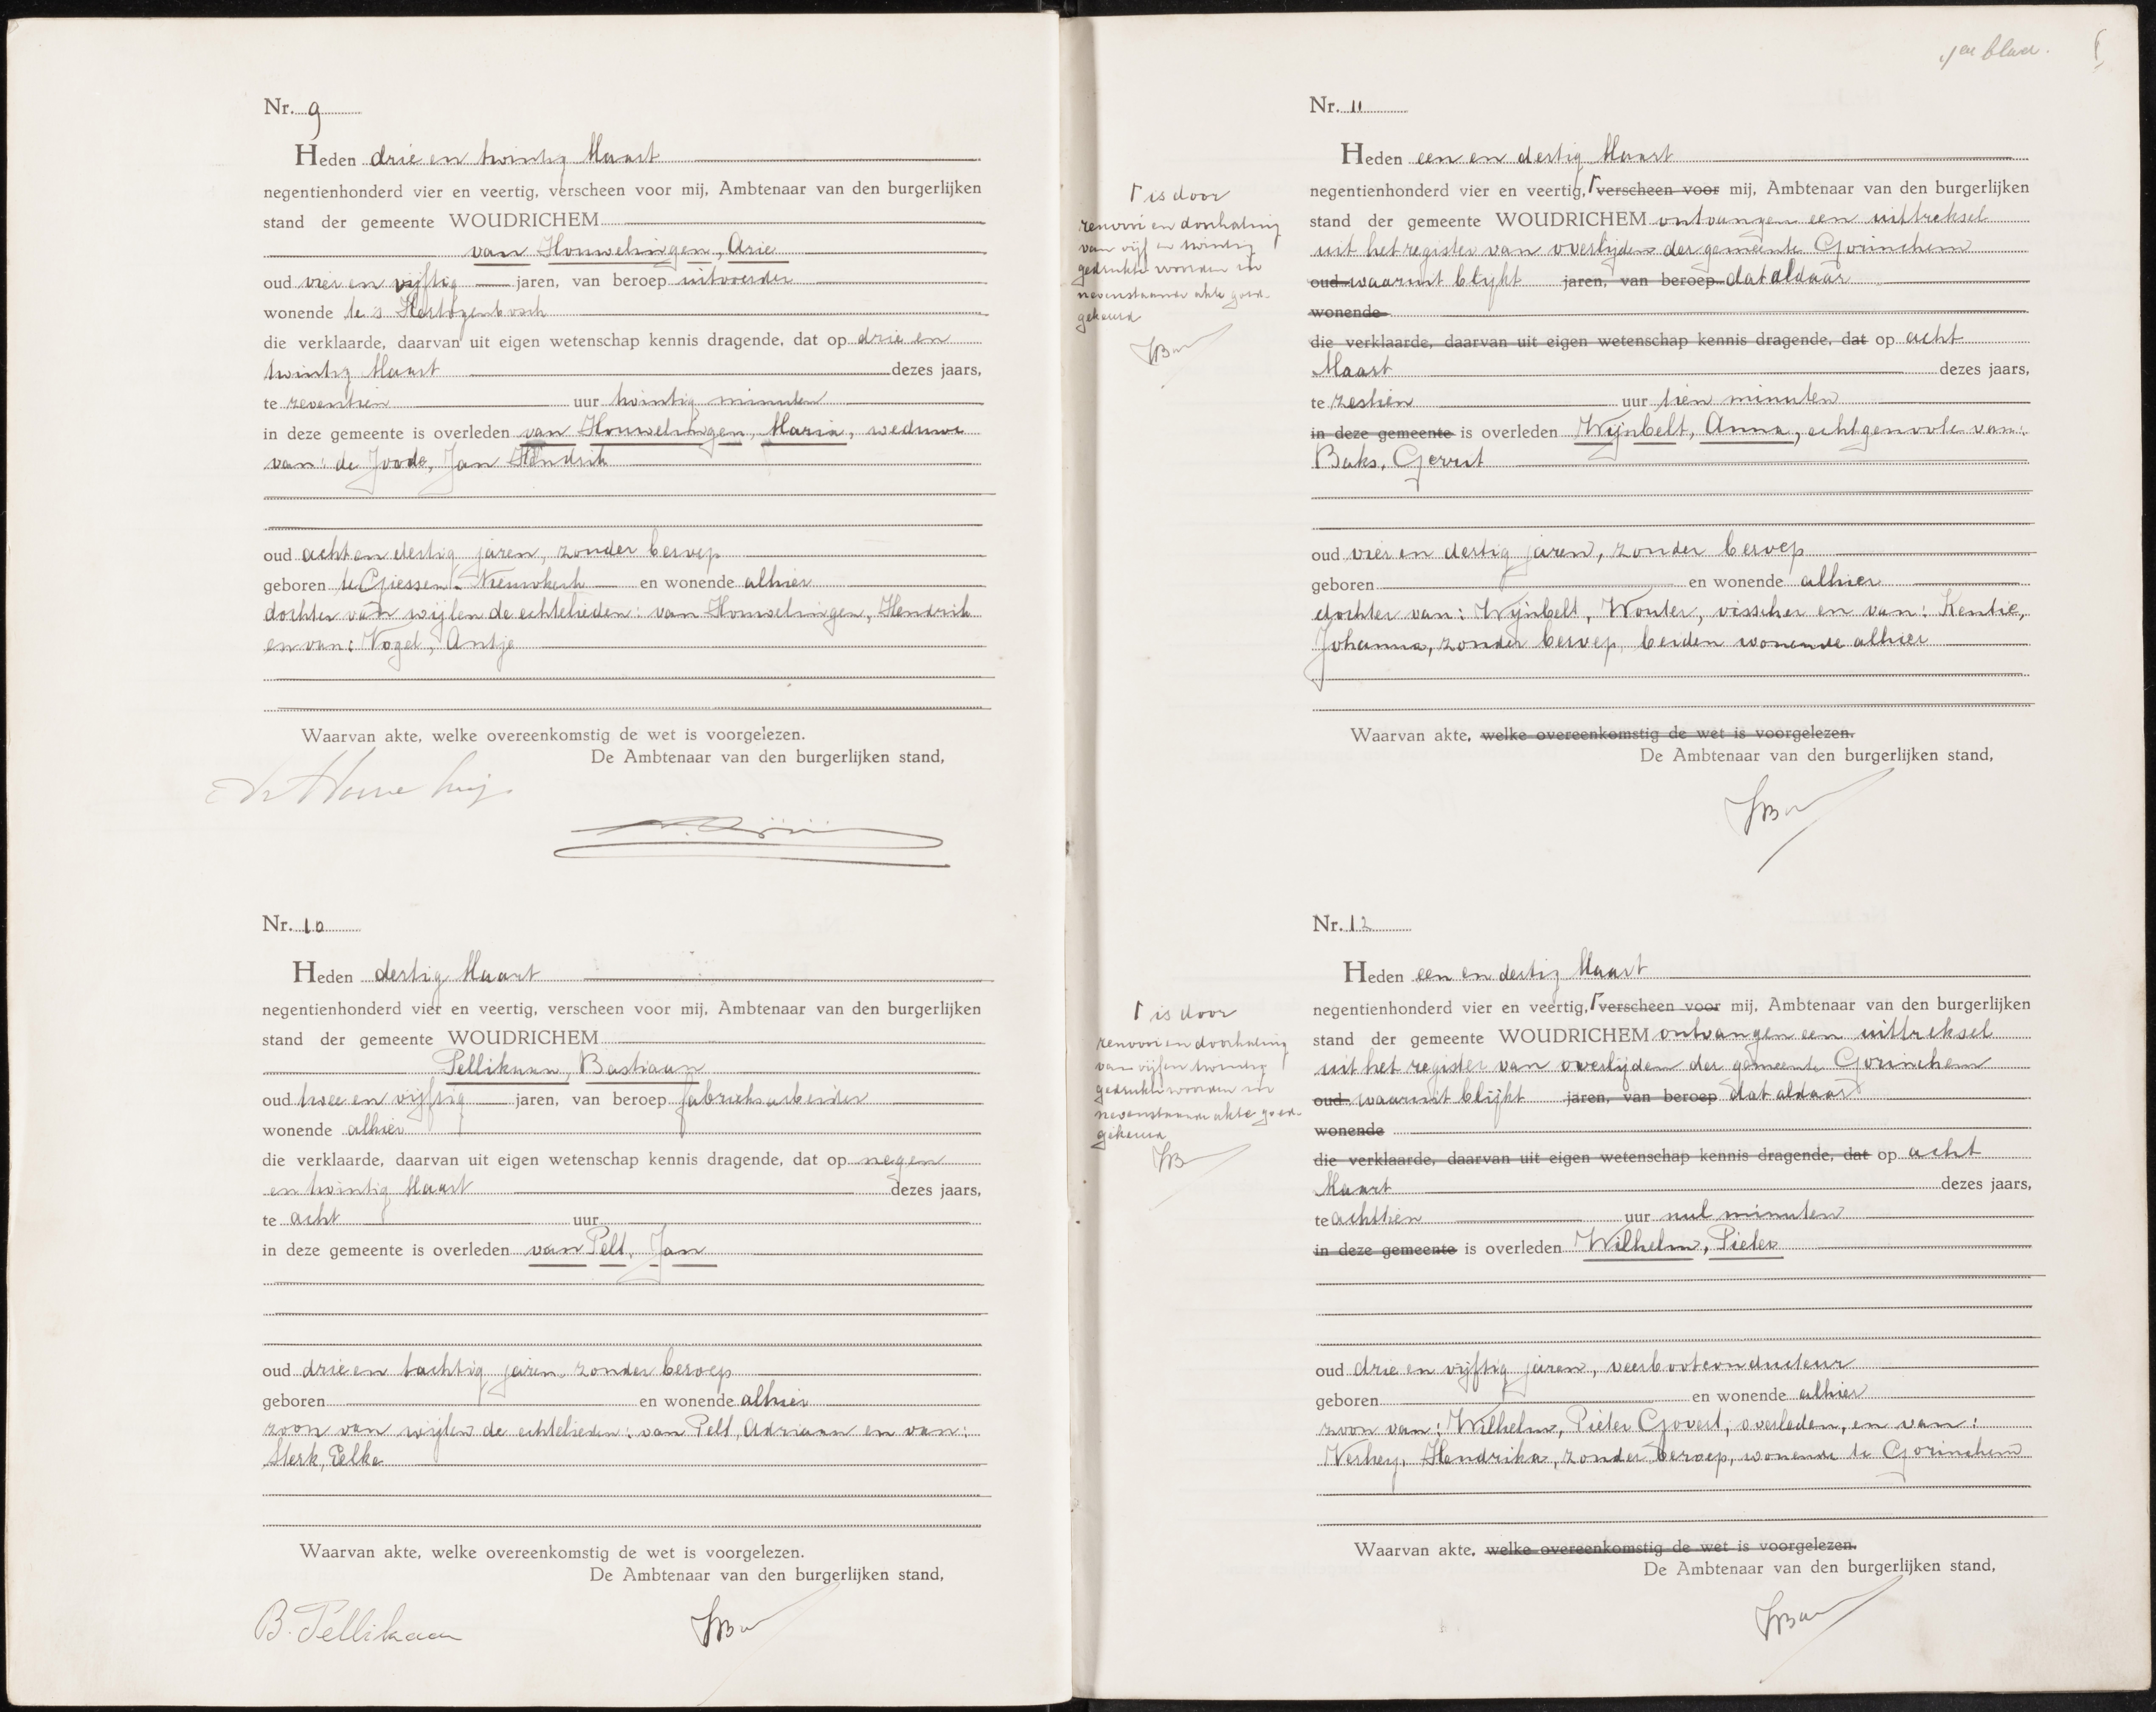 Nr. 9
Heden drie en twintig Maart
negentienhonderd vier en veertig, verscheen voor mij, Ambtenaar van den burgerlijken
stand der gemeente WOUDRICHEM
van Houwelingen, Arie
oud vier en vijftig jaren, van beroep uitvoerder
wonende te 's Hertogenbosch
die verklaarde, daarvan uit eigen wetenschap kennis dragende, dat op drie en
twintig Maart dezes jaars,
te zeventien uur twintig minuten
in deze gemeente is overleden van Houwelingen, Maria, weduwe
van: de Joode, Jan Hendrik
oud acht en dertig jaren, zonder beroep
geboren te Giessen-Nieuwkerk en wonende alhier
dochter van wijlen de echtelieden: van Houwelingen, Hendrik
en van: Vogel, Antje
Waarvan akte, welke overeenkomstig de wet is voorgelezen.
De Ambtenaar van den burgerlijken stand,
Nr. 10
Heden dertig Maart
negentienhonderd vier en veertig, verscheen voor mij, Ambtenaar van den burgerlijken
stand der gemeente WOUDRICHEM
Pellikaan, Bastiaan
oud twee en vijftig jaren, van beroep fabrieksarbeider
wonende alhier
die verklaarde, daarvan uit eigen wetenschap kennis dragende, dat op negen
en twintig Maart dezes jaars,
te acht uur
in deze gemeente is overleden van Pelt, Jan
oud drie en tachtig jaren, zonder beroep
geboren en wonende alhier
zoon van wijlen de echtelieden: van Pelt, Adriaan en van:
Sterk, Eelke
Waarvan akte, welke overeenkomstig de wet is voorgelezen.
De Ambtenaar van den burgerlijken stand,
B. Pellikaan
blad.
Nr. 11
Heden een en dertig Maart
negentienhonderd vier en veertig, ⌈ verscheen voor mij, Ambtenaar van den burgerlijken
stand der gemeente WOUDRICHEM ontvangen een uittreksel
uit het register van overlijden der gemeente Gorinchem
oud waaruit blijkt jaren, van beroep dat aldaar
wonende
die verklaarde, daarvan uit eigen wetenschap kennis dragende, dat op acht
Maart dezes jaars,
te zestien uur tien minuten
in deze gemeente is overleden Wijnbelt, Anna, echtgenoote van:
Baks, Gerrit
oud vier en dertig jaren, zonder beroep
geboren en wonende alhier
dochter van: Wijnbelt, Wouter, visscher en van: Kentie,
Johanna, zonder beroep, beiden wonende alhier
Waarvan akte, welke overeenkomstig de wet is voorgelezen.
De Ambtenaar van den burgerlijken stand,
⌈ is door
renvooi en doorhaling
van vijf en twintig
gedrukte woorden in
nevenstaande akte goed-
gekeurd
Nr. 12
Heden een en dertig Maart
negentienhonderd vier en veertig, ⌈ verscheen voor mij, Ambtenaar van den burgerlijken
stand der gemeente WOUDRICHEM ontvangen een uittreksel
uit het register van overlijden der gemeente Gorinchem
oud waaruit blijkt jaren, van beroep dat aldaar
wonende
die verklaarde, daarvan uit eigen wetenschap kennis dragende, dat op acht
Maart dezes jaars,
te achttien uur nul minuten
in deze gemeente is overleden Wilhelm, Pieter
oud drie en vijftig jaren, veerbootconducteur
geboren en wonende alhier
zoon van: Wilhelm, Pieter Govert, overleden, en van:
Verhey, Hendrika, zonder beroep, wonende te Gorinchem
Waarvan akte, welke overeenkomstig de wet is voorgelezen.
De Ambtenaar van den burgerlijken stand,
⌈ is door
renvooi en doorhaling
van vijf en twintig
gedrukte woorden in
nevenstaande akte goed-
gekeurd